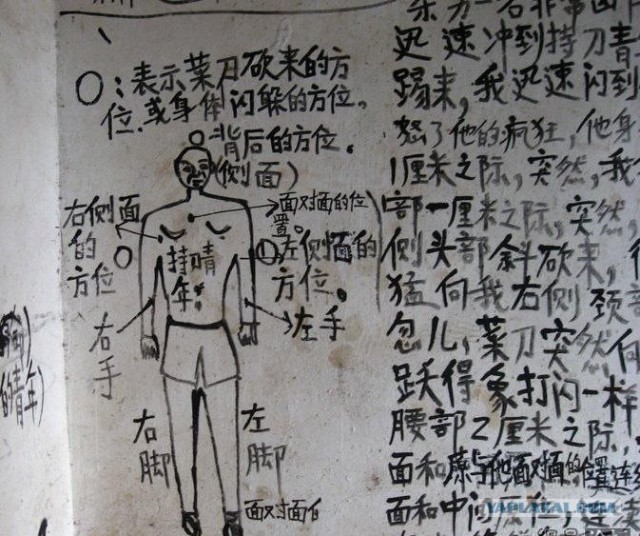 ○：表示菜刀砍来的方
位.或身体闪躲的方位。
背后的方位.
(侧面)
面对面的位
置。
右侧面
的
方位
①左侧面的
方位。
持
青年
右
手
左手
右
脚
左
脚
面对面
的青年)
迅速冲到持刀青
踢来,我迅速闪到
怒了他的疯狂,他身
1厘米之际,突然,我
部一厘米之际,突然,
侧头部斜砍来,
猛向我右侧颈
忽儿,菜刀突然向
跃得象打闪一样
腰部2厘米之际,
面和原与他面对面的位置连
面和中间
YAPLAKAL.COM